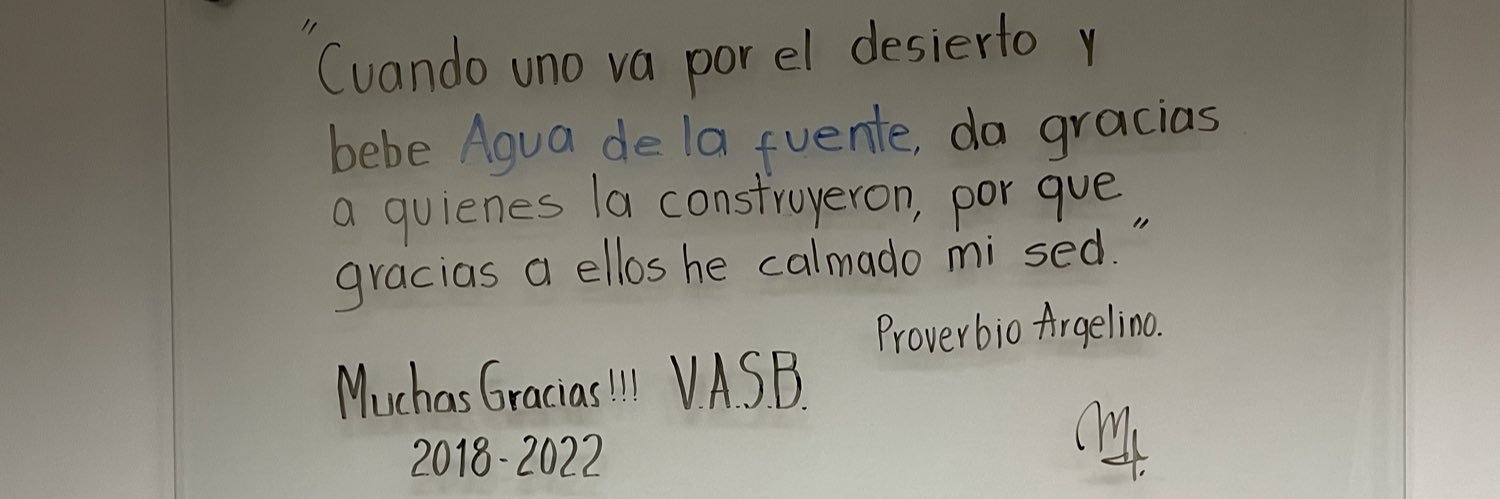 "Cuando uno va por el desierto y
bebe Agua de la fuente, da gracias
a quienes la construyeron, por que
gracias a ellos he calmado mi sed."
Proverbio Argelino.
Muchas Gracias!!! V.A.S.B.
2018-2022